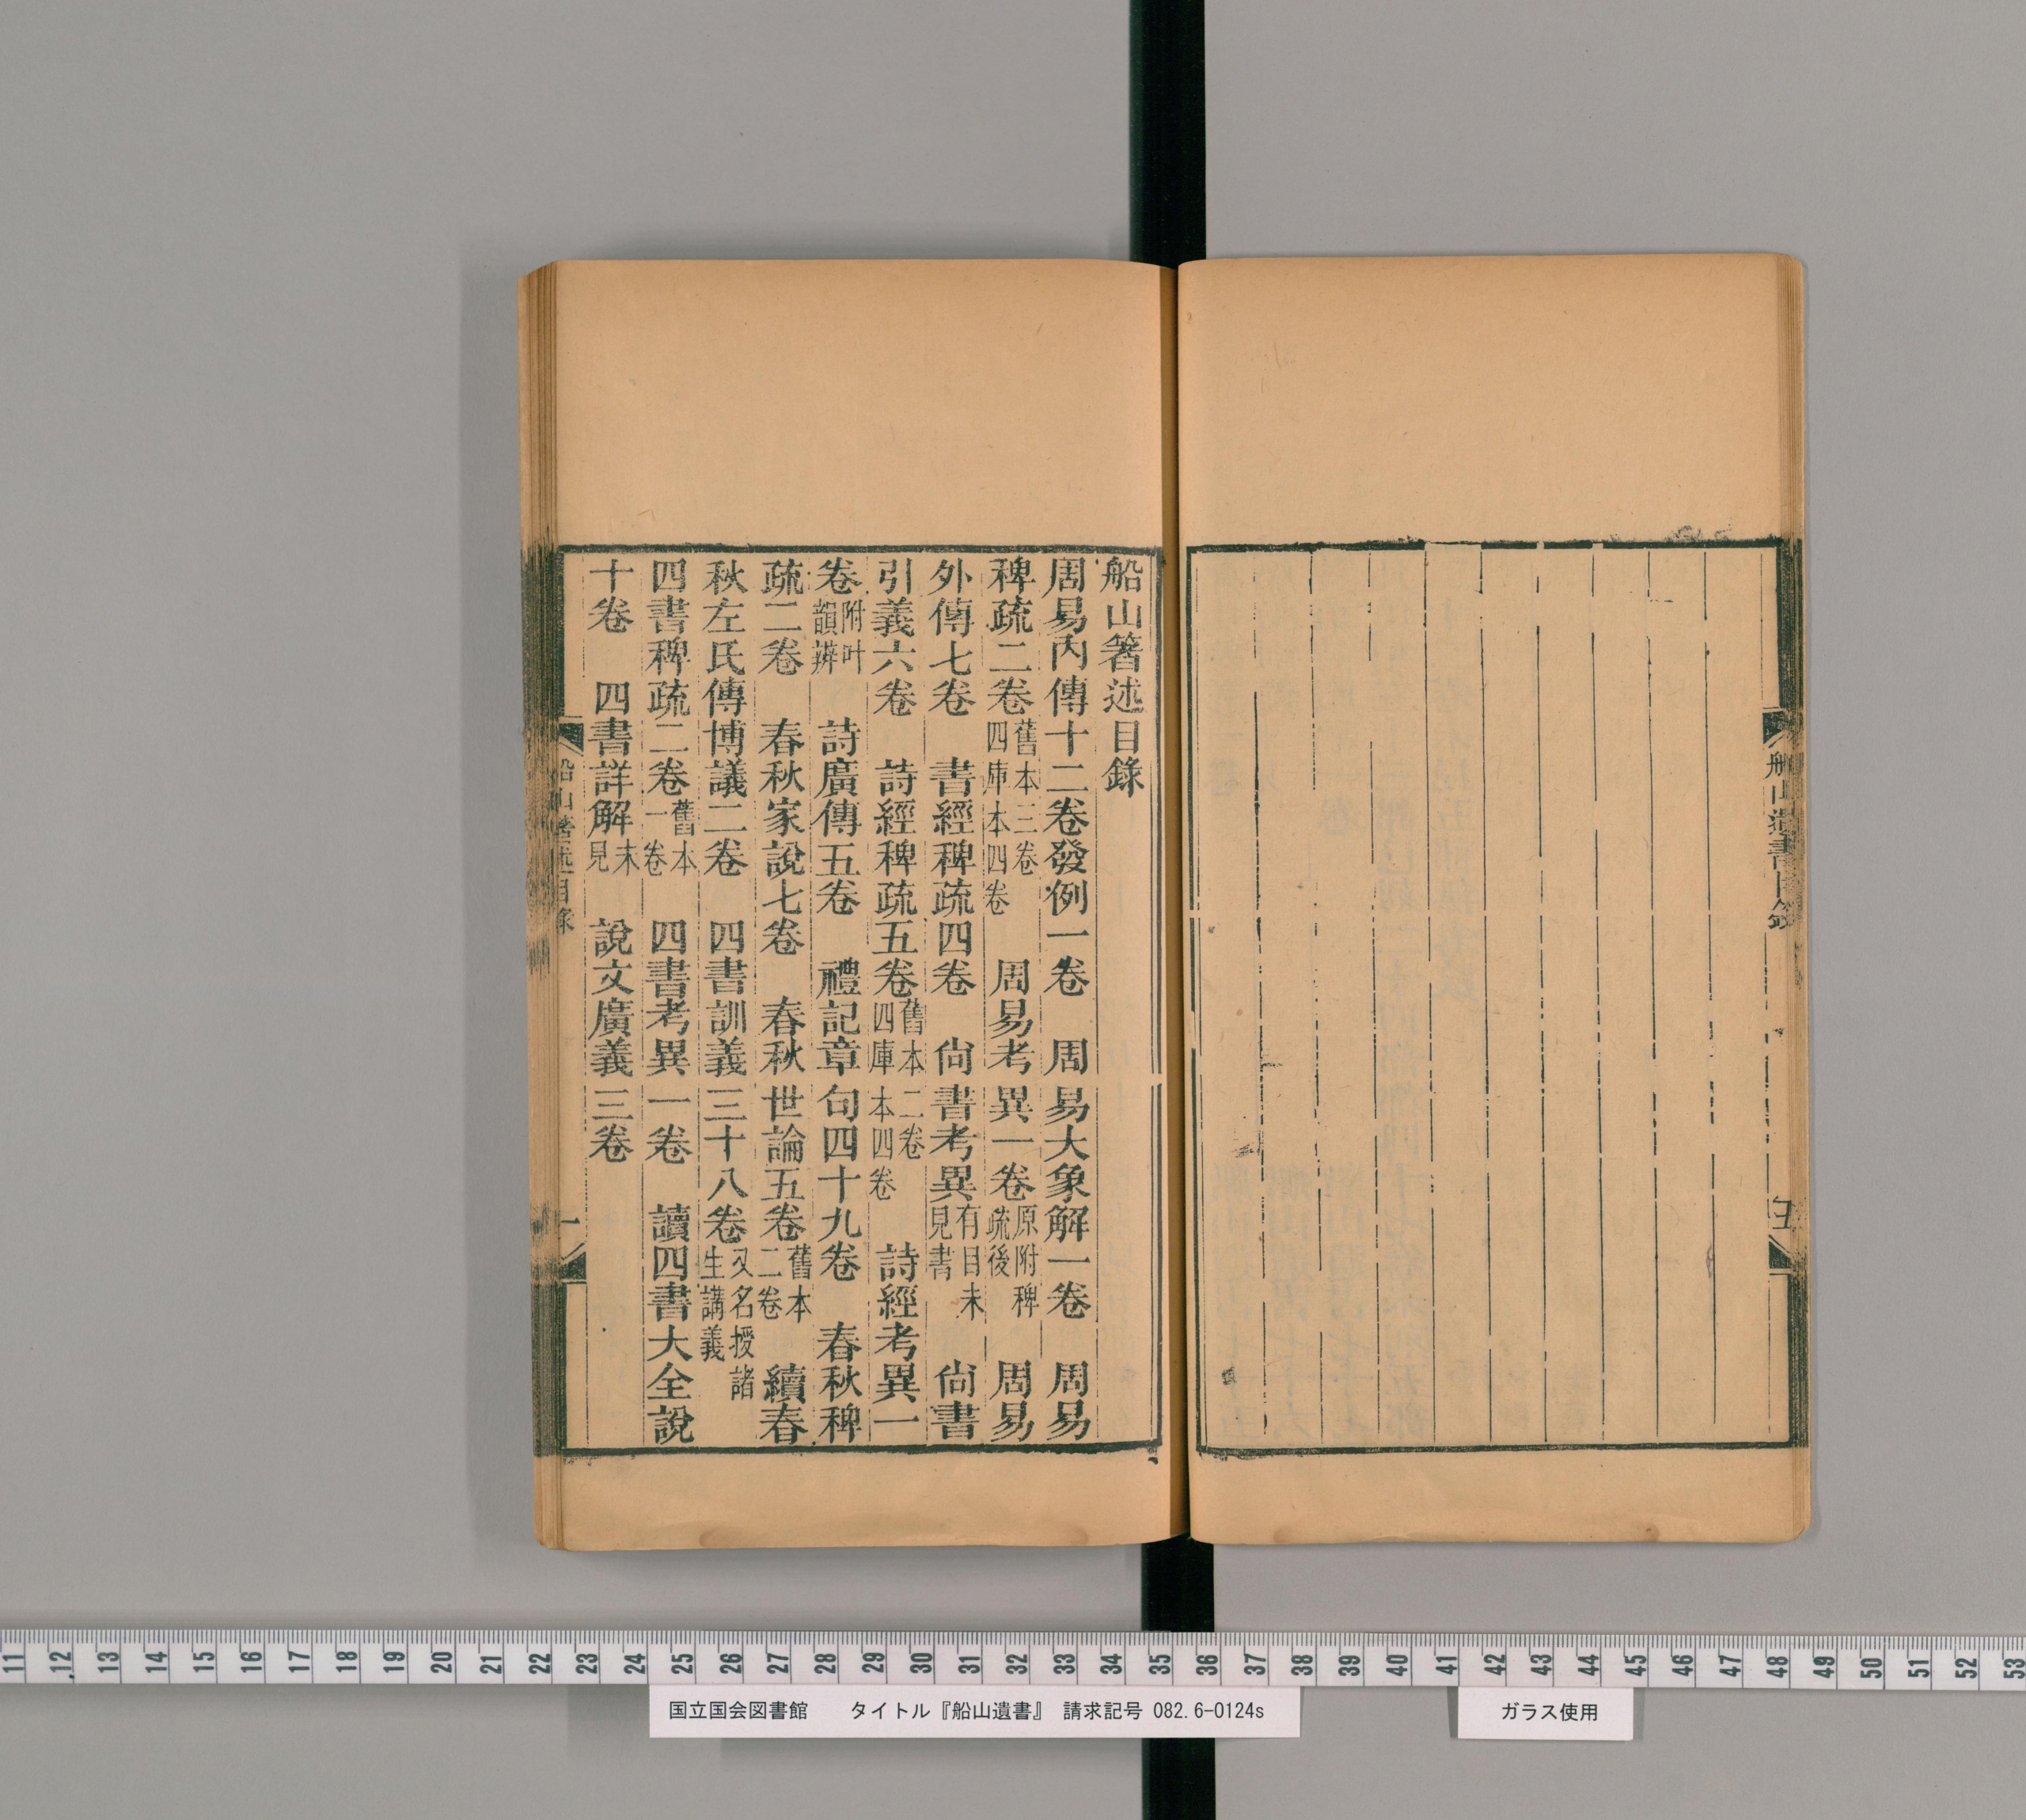 船山遺書目錄
五
船山箸述目錄
周易內傳十二卷發例一卷　周易大象解一卷　周易
稗疏二卷舊本三卷四庫本四卷　周易考異一卷原附稗疏後　周易
外傳七卷　書經稗疏四卷　尙書考異有目未見書　尙書
引義六卷　詩經稗疏五卷舊本二卷四庫本四卷　詩經考異一
卷附叶韻辨　詩廣傳五卷　禮記章句四十九卷　春秋稗
疏二卷　春秋家說七卷　春秋世論五卷舊本二卷　續春
秋左氏傳博議二卷　四書訓義三十八卷又名授諸生講義
四書稗疏二卷舊本一卷　四書考異一卷　讀四書大全說
十卷　四書詳解未見　說文廣義三卷
船山箸述目錄
一
国立国会図書館　タイトル『船山遺書』　請求記号 082.6-0124s
ガラス使用
11 12 13 14 15 16 17 18 19 20 21 22 23 24 25 26 27 28 29 30 31 32 33 34 35 36 37 38 39 40 41 42 43 44 45 46 47 48 49 50 51 52 53